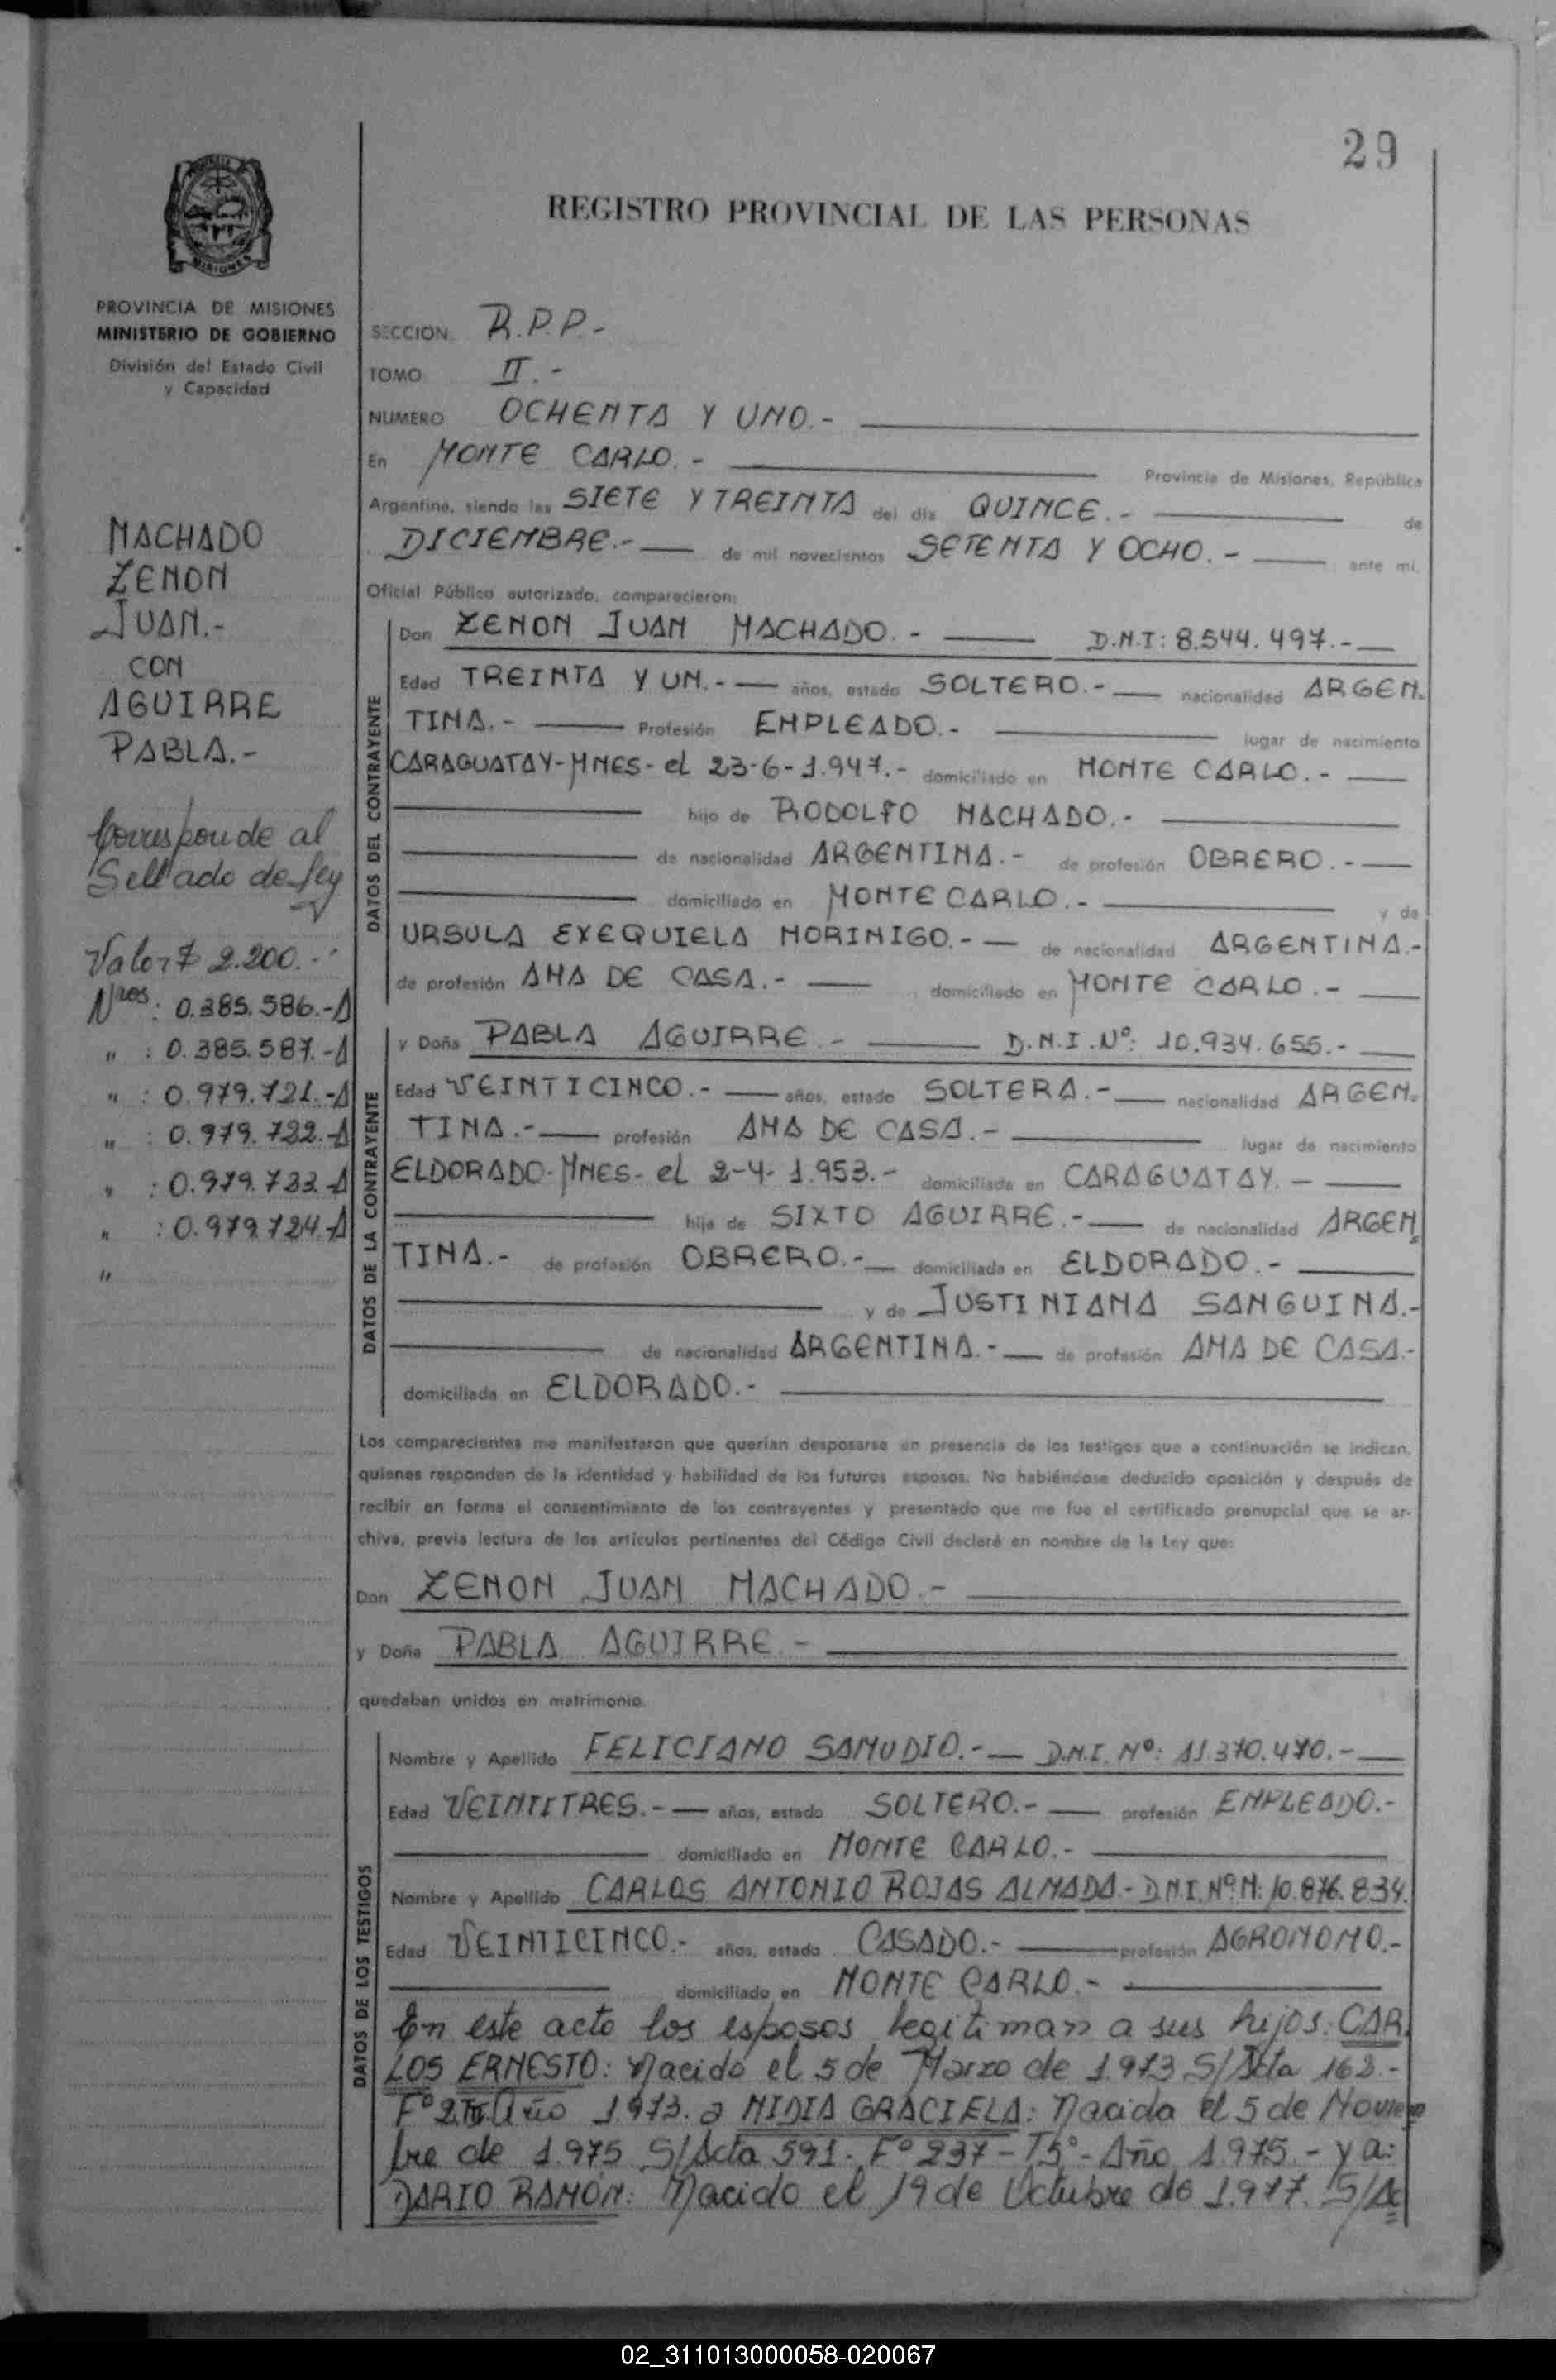 29
REGISTRO PROVINCIAL DE LAS PERSONAS
MISIONES
PROVINCIA DE MISIONES
MINISTERIO DE GOBIERNO
División del Estado Civil
y Capacidad
MACHADO
ZENON
JUAN.-
CON
AGUIRRE
PABLA.-
Corresponde al
Sellado de ley
Valor $ 2.200.-
Nros: 0.385.586.-A
" : 0.385.587.-A
" : 0.979.721.-A
" : 0.979.722.-A
" : 0.979.723.-A
" : 0.979.724.-A
"
SECCION R.P.P.-
TOMO II.-
NUMERO OCHENTA Y UNO.-
En MONTE CARLO.- Provincia de Misiones, República
Argentina, siendo las SIETE Y TREINTA del día QUINCE.- de
DICIEMBRE.- de mil novecientos SETENTA Y OCHO.- ante mí,
Oficial Público autorizado, comparecieron:
DATOS DEL CONTRAYENTE
Don ZENON JUAN MACHADO.- D.N.I: 8.544.497.-
Edad TREINTA Y UN.- años, estado SOLTERO.- nacionalidad ARGEN-
TINA.- Profesión EMPLEADO.- lugar de nacimiento
CARAGUATAY-MNES- el 23-6-1.947.- domiciliado en MONTE CARLO.-
hijo de RODOLFO MACHADO.-
de nacionalidad ARGENTINA.- de profesión OBRERO.-
domiciliado en MONTE CARLO.- y de
URSULA EXEQUIELA MORINIGO.- de nacionalidad ARGENTINA.-
de profesión AMA DE CASA.- domiciliado en MONTE CARLO.-
DATOS DE LA CONTRAYENTE
y Doña PABLA AGUIRRE.- D.N.I.Nº: 10.934.655.-
Edad VEINTICINCO.- años, estado SOLTERA.- nacionalidad ARGEN-
TINA.- profesión AMA DE CASA.- lugar de nacimiento
ELDORADO-MNES- el 2-4-1.953.- domiciliada en CARAGUATAY.-
hija de SIXTO AGUIRRE.- de nacionalidad ARGEN
TINA.- de profesión OBRERO.- domiciliado en ELDORADO.-
y de JUSTINIANA SANGUINA.-
de nacionalidad ARGENTINA.- de profesión AMA DE CASA.-
domiciliada en ELDORADO.-
Los comparecientes me manifestaron que querían desposarse en presencia de los testigos que a continuación se indican,
quienes responden de la identidad y habilidad de los futuros esposos. No habiéndose deducido oposición y después de
recibir en forma el consentimiento de los contrayentes y presentado que me fue el certificado prenupcial que se ar-
chiva, previa lectura de los artículos pertinentes del Código Civil declaré en nombre de la Ley que:
Don ZENON JUAN MACHADO.-
y Doña PABLA AGUIRRE.-
quedaban unidos en matrimonio.
DATOS DE LOS TESTIGOS
Nombre y Apellido FELICIANO SAMUDIO.- D.N.I. Nº: 11.370.470.-
Edad VEINTITRES.- años, estado SOLTERO.- profesión EMPLEADO.-
domiciliado en MONTE CARLO.-
Nombre y Apellido CARLOS ANTONIO ROJAS ALMADA.- D.N.I.NºM: 10.876.834.
Edad VEINTICINCO.- años, estado CASADO.- profesión AGRONOMO.-
domiciliado en MONTE CARLO.-
En este acto los esposos legitiman a sus hijos: CAR
LOS ERNESTO: Nacido el 5 de Marzo de 1.973 S/Acta 162.-
Fº Año 1.973. a NIDIA GRACIELA: Nacida el 5 de Noviem
bre de 1.975 S/Acta 591- Fº 237- T5º- Año 1.975.- y a:
DARIO RAMÓN: Nacido el 19 de Octubre de 1.977. S/Ac
02_311013000058-020067